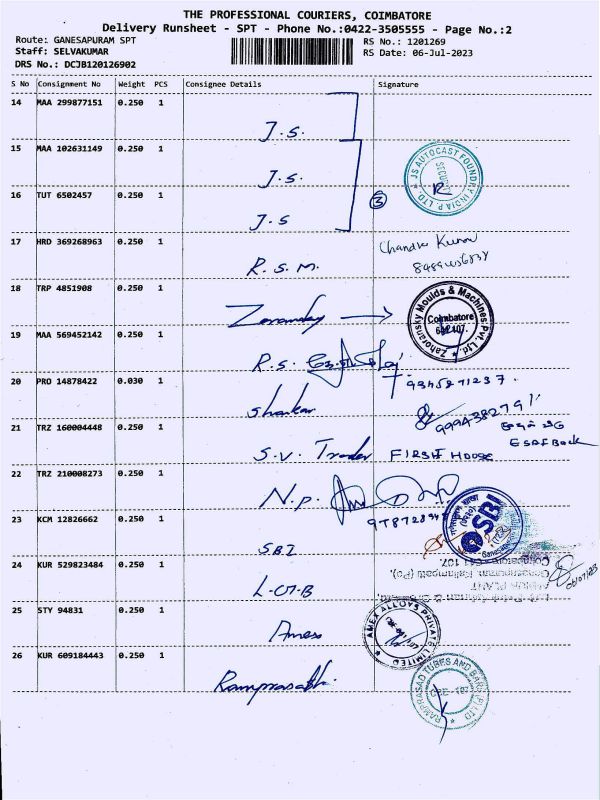 THE PROFESSIONAL COURIERS, COIMBATORE
Delivery Runsheet - SPT - Phone No.:0422-3505555 - Page No.:2
Route: GANESAPURAM SPT
RS No.: 1201269
Staff: SELVAKUMAR
RS Date: 06-Jul-2023
DRS No.: DCJB120126902
S No Consignment No Weight PCS Consignee Details Signature
14 MAA 299877151 0.250 1
J.S.
15 MAA 102631149 0.250 1
J.S.
JS AUTOCAST FOUNDRY INDIA P. LTD.
SECURITY
16 TUT 6502457 0.250 1
3
J.S
17 HRD 369268963 0.250 1
R.S.M.
Chandra Kumar
18 TRP 4851908 0.250 1
Zahoransky Moulds & Machines Pvt. Ltd.
Coimbatore
641 107.
19 MAA 569452142 0.250 1
R.S.
20 PRO 14878422 0.030 1
9345271237.
Shankar
9994382791
21 TRZ 160004448 0.250 1
ESAF Bank
S.V. Trader FIRST HOUSE
22 TRZ 210008273 0.250 1
N.P.
23 KCM 12826662 0.250 1
SBI
SBI
24 KUR 529823484 0.250 1
Coimbatore - 641 107.
06/07/23
25 STY 94831 0.250 1
Amex
AMEX ALLOYS PRIVATE LIMITED
26 KUR 609184443 0.250 1
Ramprasath
RAMPRASAD TUBES AND BARS (P) LTD
CBE - 107